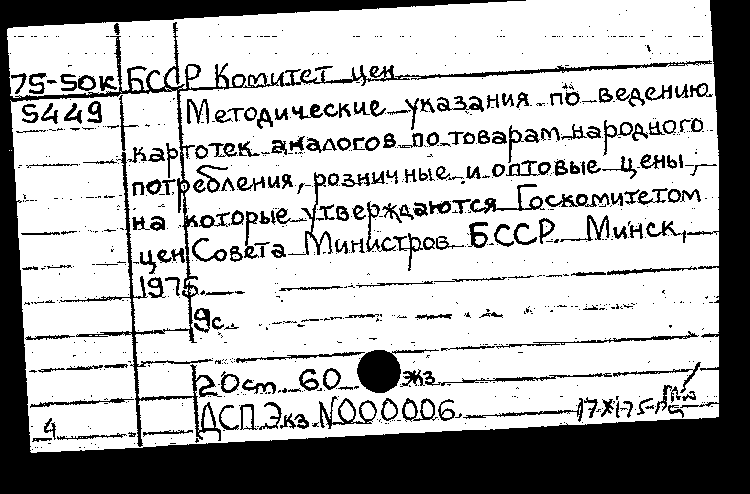 75-50к БССР Комитет цен
5449 Методические указания по ведению
картотек аналогов по товарам народного
потребления, розничные и оптовые цены,
на которые утверждаются Госкомитетом
цен Совета Министров БССР. Минск,
1975.
9с.
20см. 60 экз
ДСП. Экз. N000006.
4 17XI75-